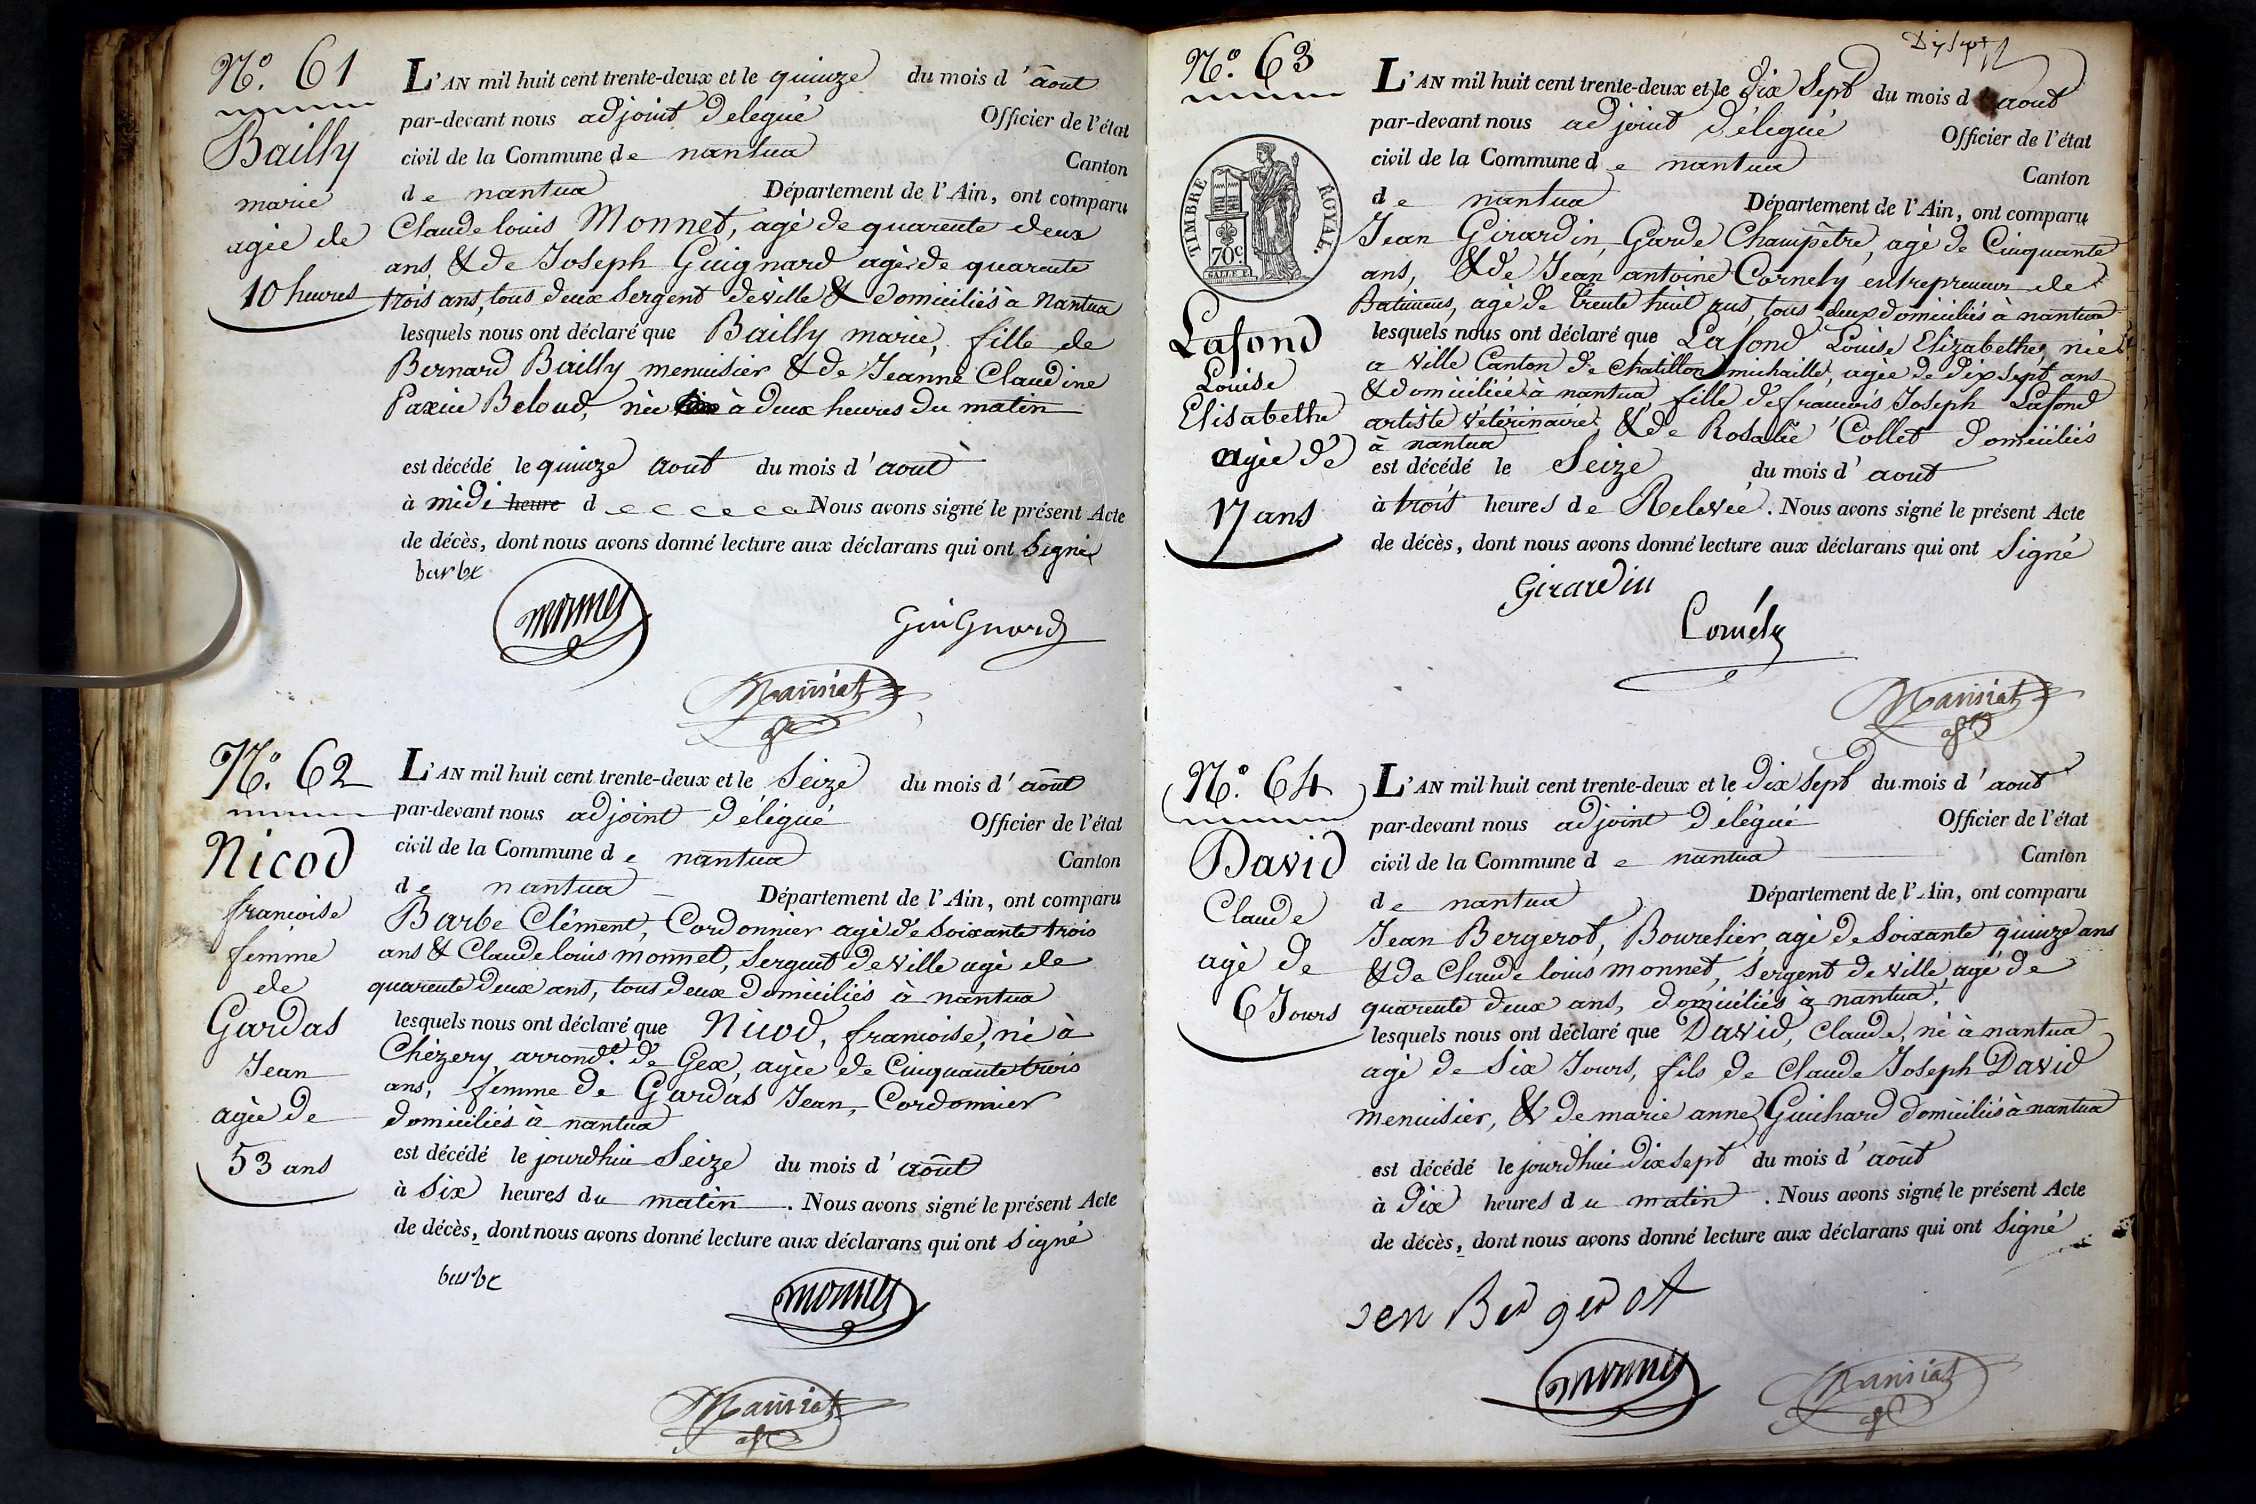 N.º 61
Bailly
marie
agée de
10 heures
L'AN mil huit cent trente-deux et le quinze du mois d'août
par-devant nous adjoint délégué Officier de l'état
civil de la Commune de nantua Canton
de nantua Département de l'Ain, ont comparu
Claude louis Monnet, agé de quarente deux
ans, & de Joseph Guignard agé de quarente
trois ans, tous deux Sergent de ville & domiciliés à Nantua
lesquels nous ont déclaré que Bailly marie, fille de
Bernard Bailly menuisier & de Jeanne Claudine
Beloud, née à deux heures du matin
est décédé le quinze aout du mois d'aout
à midi heure d e e e e e e Nous avons signé le présent Acte
de décès, dont nous avons donné lecture aux déclarans qui ont Signé
barbe
monnet
GuiGnard
N.º 62
Nicod
francoise
femme
de
Gardas
Jean
agée de
53 ans
L'AN mil huit cent trente-deux et le Seize du mois d'août
par-devant nous adjoint délégué Officier de l'état
civil de la Commune de nantua Canton
de nantua Département de l'Ain, ont comparu
Barbe Clément, Cordonnier agé de Soixante trois
ans & Claude louis monnet, Sergent de ville agé de
quarente deux ans, tous deux domiciliés à nantua
lesquels nous ont déclaré que Nicod, francoise, né à
Chézery arrond.t de Gex, agée de Cinquante trois
ans, femme de Gardas Jean, Cordonnier
domiciliés à nantua
est décédé le jourdhui Seize du mois d'août
à Six heures du matin. Nous avons signé le présent Acte
de décès, dont nous avons donné lecture aux déclarans qui ont Signé
barbe
monnet
Dix sept
N.º 63
TIMBRE ROYAL
70c
Lafond
Louise
Elisabethe
agée de
17 ans
L'AN mil huit cent trente-deux et le dix Sept du mois d'aout
par-devant nous adjoint délégué Officier de l'état
civil de la Commune de nantua Canton
de nantua Département de l'Ain, ont comparu
Jean Girardin, Garde Champêtre, agé de Cinquante
ans, & de Jean antoine Cornely entrepreneur de
Batimens, agé de trente huit ans, tous deux domiciliés à nantua
lesquels nous ont déclaré que Lafond Louise Elizabethe, née
a Ville Canton de Chatillon michaille, agée de dix sept ans
& domiciliée à nantua fille de francois Joseph Lafond
artiste Vétérinaire, & de Rosalie Collet domiciliés
à nantua
est décédé le Seize du mois d'aout
à trois heures de Relevée. Nous avons signé le présent Acte
de décès, dont nous avons donné lecture aux déclarans qui ont Signé
Girardin
Cornély
N.º 64
David
Claude
agé de
6 Jours
L'AN mil huit cent trente-deux et le dix Sept du mois d'août
par-devant nous adjoint délégué Officier de l'état
civil de la Commune de nantua Canton
de nantua Département de l'Ain, ont comparu
Jean Bergerot, Bourelier, agé de Soixante quinze ans
& de Claude louis monnet, Sergent de ville agé de
quarente deux ans, domiciliés à nantua,
lesquels nous ont déclaré que David, Claude, né à nantua
agé de Six Jours, fils de Claude Joseph David
menuisier, & de marie anne Guichard domiciliés à nantua
est décédé le jourdhui dix sept du mois d'août
à dix heures du matin. Nous avons signé le présent Acte
de décès, dont nous avons donné lecture aux déclarans qui ont Signé
Jen Bergerot
monnet